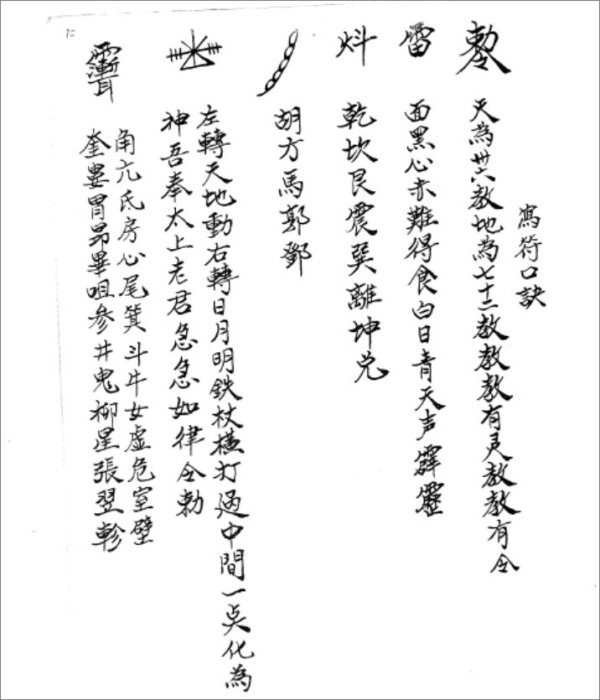 寫符口訣
勅 天為卅六教地為七十二教教教有灵教教有令
雷 面黑心赤難得食白日青天声霹靂
炓 乾坎艮震巽離坤兑
胡方馬郭鄧
左轉天地動右轉日月明鉄杖橫打過中間一点化為
神吾奉太上老君急急如律令勅
角亢氐房心尾箕斗牛女虛危室壁
奎婁胃昴畢咀參井鬼柳星張翌軫